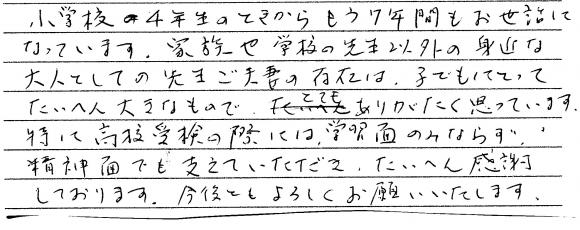 小学校の4年生のときからもう7年間もお世話に
なっています。家族や学校の先生以外の身近な
大人としての先生ご夫妻の存在は、子どもにとって
たいへん大きなもので、とてもありがたく思っています。
特に高校受検の際には、学習面のみならず、
精神面でも支えていただき、たいへん感謝
しております。今後ともよろしくお願いいたします。